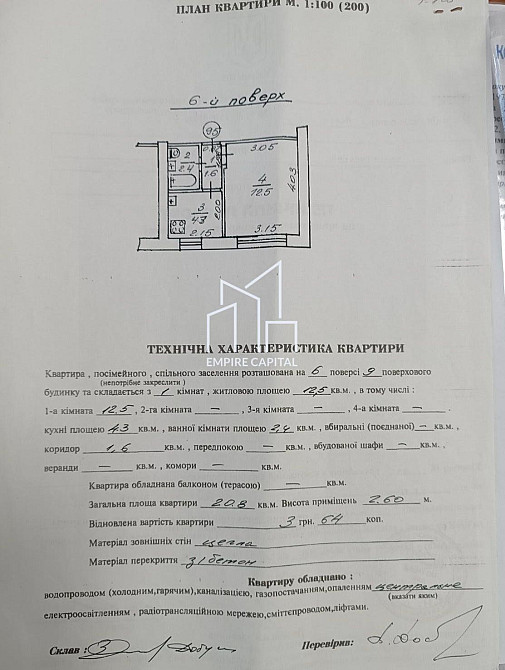 ПЛАН КВАРТИРИ М. 1:100 (200)
6-й поверх
95
3.05
2
2.4
1
1.6
4
12.5
4.03
3
4.3
2.00
2.15
3.15
EMPIRE CAPITAL
ТЕХНІЧНА ХАРАКТЕРИСТИКА КВАРТИРИ
Квартира , посімейного , спільного заселення розташована на 6 поверсі 9 поверхового
(непотрібне закреслити )
будинку та складається з 1 кімнат , житловою площею 12,5 кв.м , в тому числі :
1-а кімната 12,5 , 2-га кімната — , 3-я кімната — , 4-а кімната — .
кухні площею 4.3 кв.м , ванної кімнати площею 2,4 кв.м , вбиральні (поєднаної) — кв.м ,
коридор 1,6 кв.м , передпокою — кв.м , вбудованої шафи — кв.м ,
веранди — кв.м , комори — кв.м .
Квартира обладнана балконом (терасою) — кв.м.
Загальна площа квартири 20.8 кв.м. Висота приміщень 2.60 м.
Відновлена вартість квартири 3 грн. 64 коп.
Матеріал зовнішніх стін цегла
Матеріал перекриття з/бетон
Квартиру обладнано :
водопроводом (холодним,гарячим),каналізацією, газопостачанням,опаленням центральне
(вказати яким)
електроосвітленням , радіотрансляційною мережею,сміттєпроводом,ліфтами.
Склав :
Перевірив: